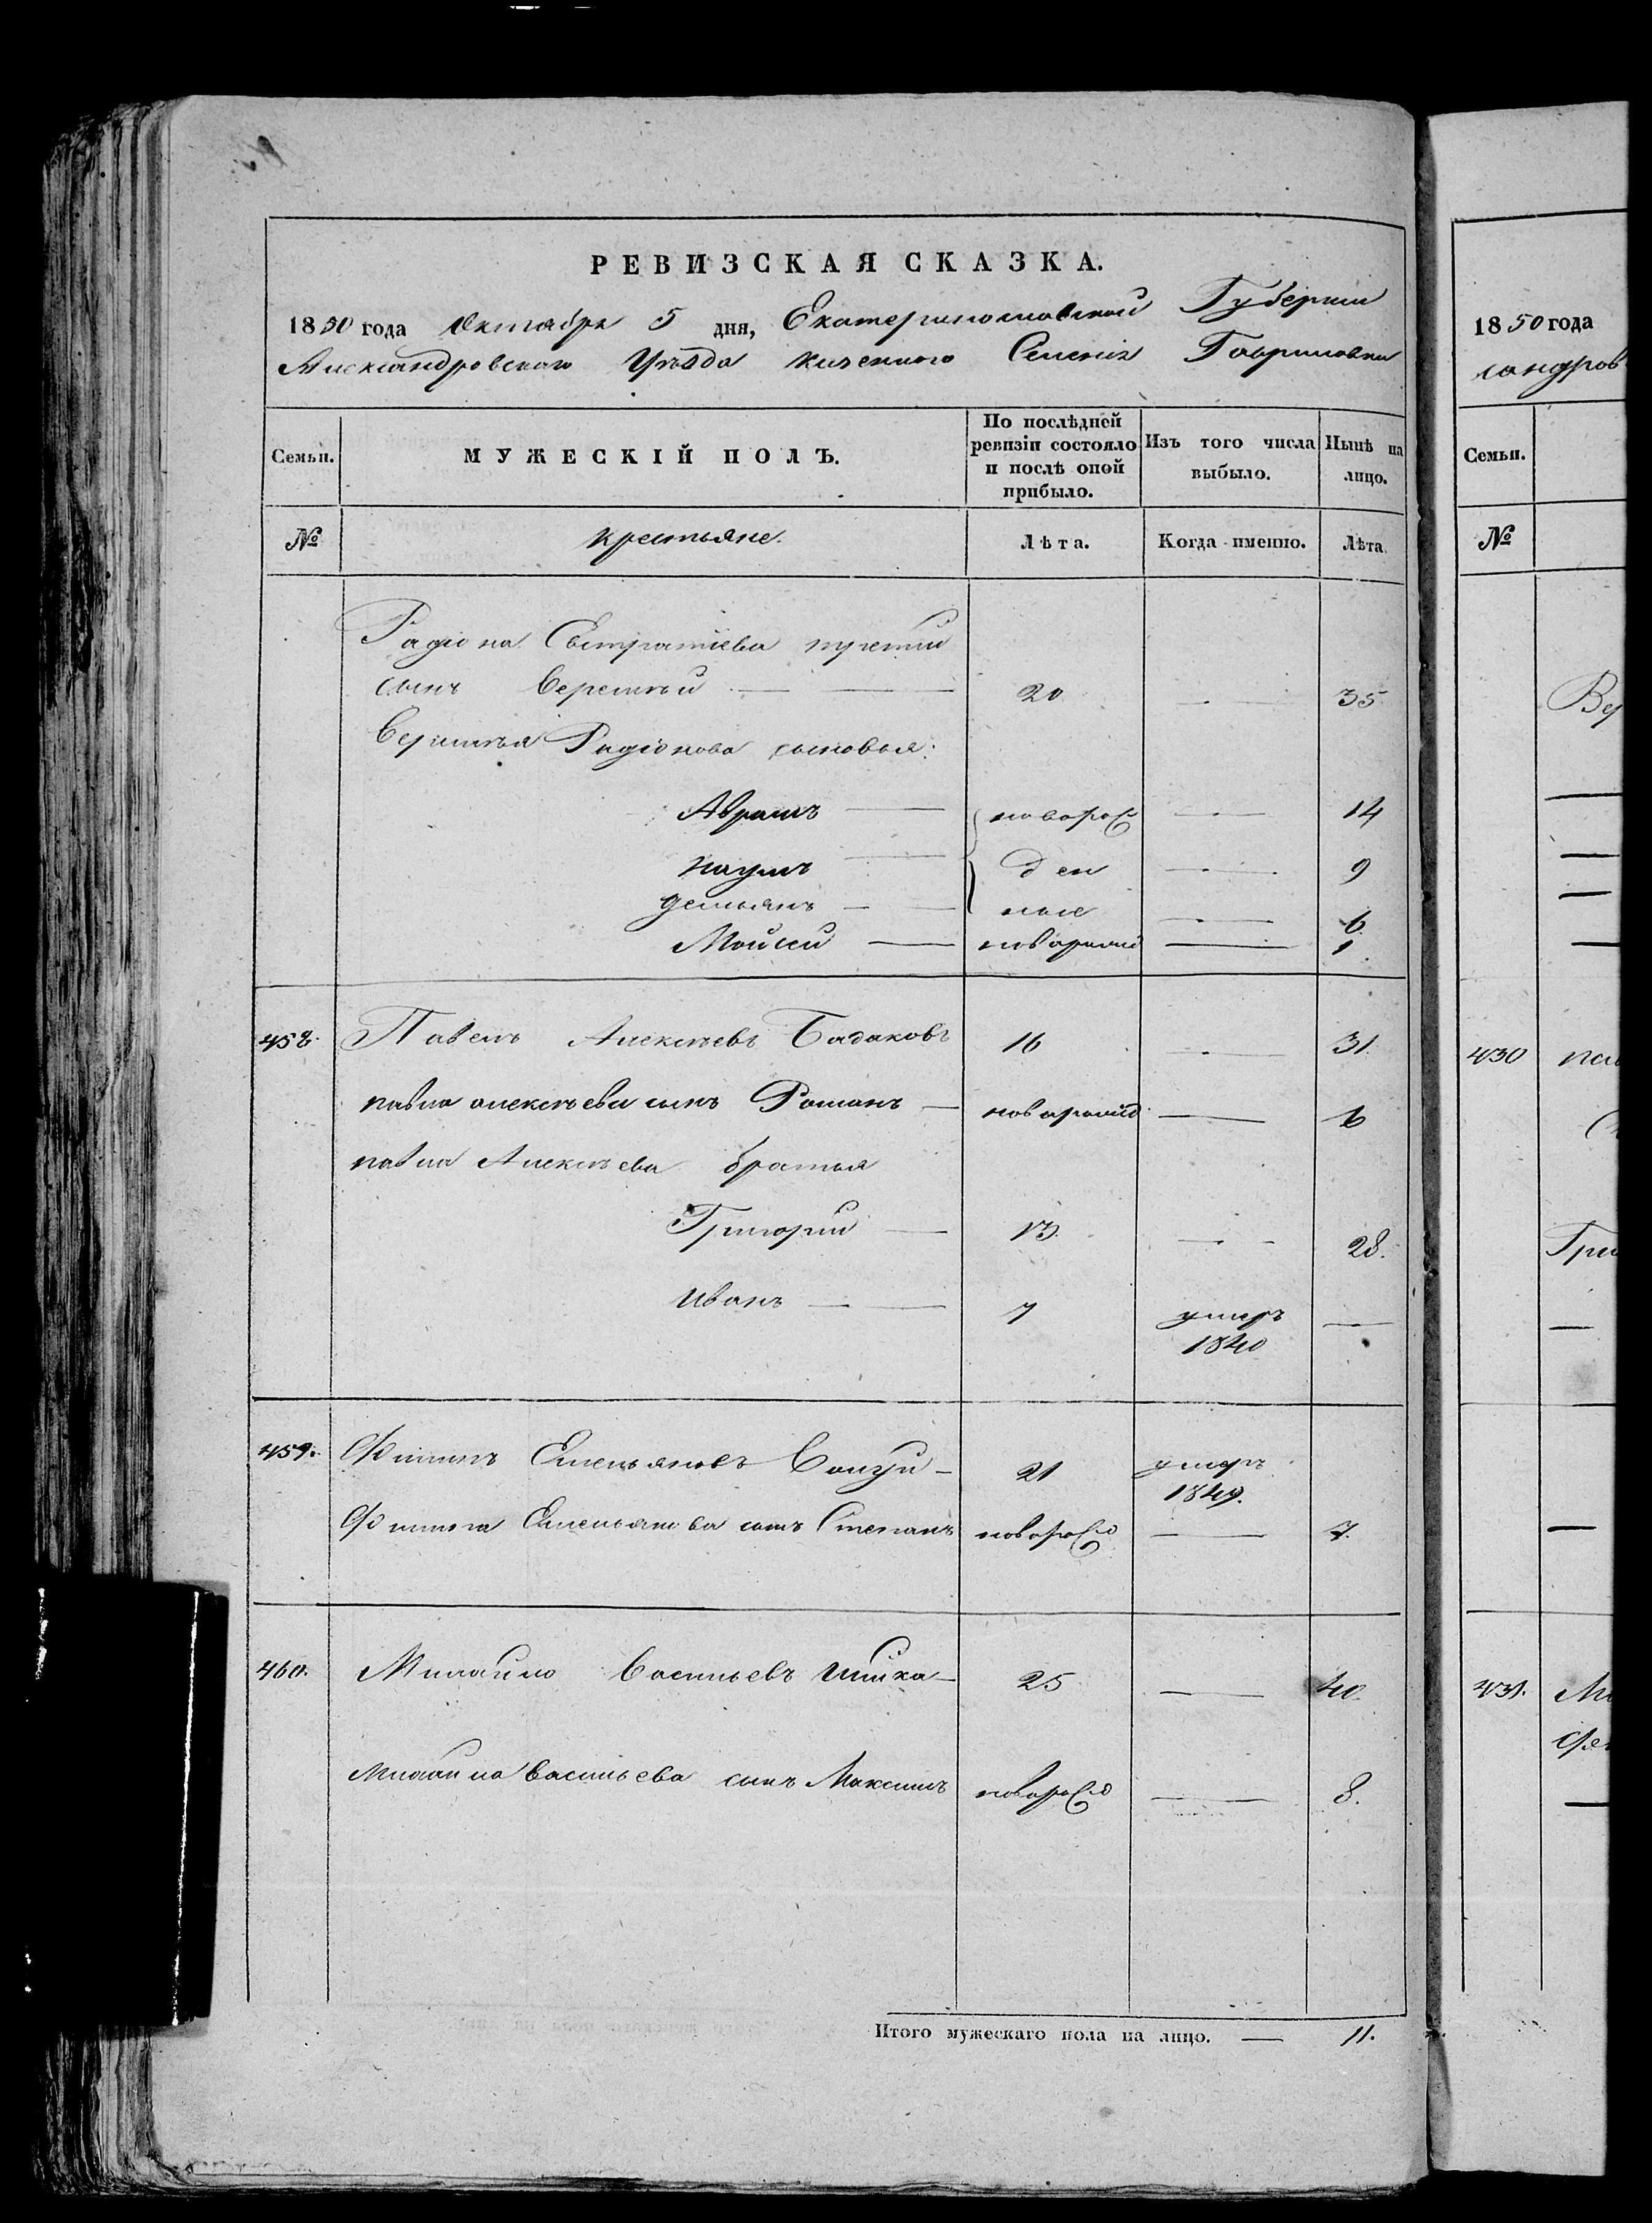 РЕВИЗСКАЯ СКАЗКА.
1850 года Октября 5 дня, Екатеринославской Губернии
Александровскаго Уѣзда казеннаго Селенія Гавриловки
Семьи. МУЖЕСКІЙ ПОЛЪ. По послѣдней ревизіи состояло и послѣ оной прибыло. Изъ того числа выбыло. Нынѣ на лицо.
№ крестьяне. Лѣта. Когда именно. Лѣта.
Радіона Евстратіева третий
сынъ Верентѣй — — 20 — 35
Верентѣя Радіонова сыновья:
Аврамъ — новорож — 14
Наумъ — ден — 9
Демьянъ — — ные — 6
Мойсей — новорожд — 1
458. Павелъ Алексѣевъ Бадаковъ 16 — 31.
павла алексѣева сынъ Романъ — новорожд — 6
павла Алексѣева братья
Григорий — 13 — 28.
Иванъ — — 7 умеръ 1840 —
459. Филипъ Емельяновъ 21 умеръ 1849.
Филипа Емельянова сынъ Степанъ новорожд — 7.
460. Михайло Васильевъ Шишка — 25 — 40.
Михайла Васильева сынъ Максимъ новорожд — 8.
Итого мужескаго пола на лицо. — 11.
1850 года
сандров
Семьи.
№
Вер
430 пав
Гри
431. Ми